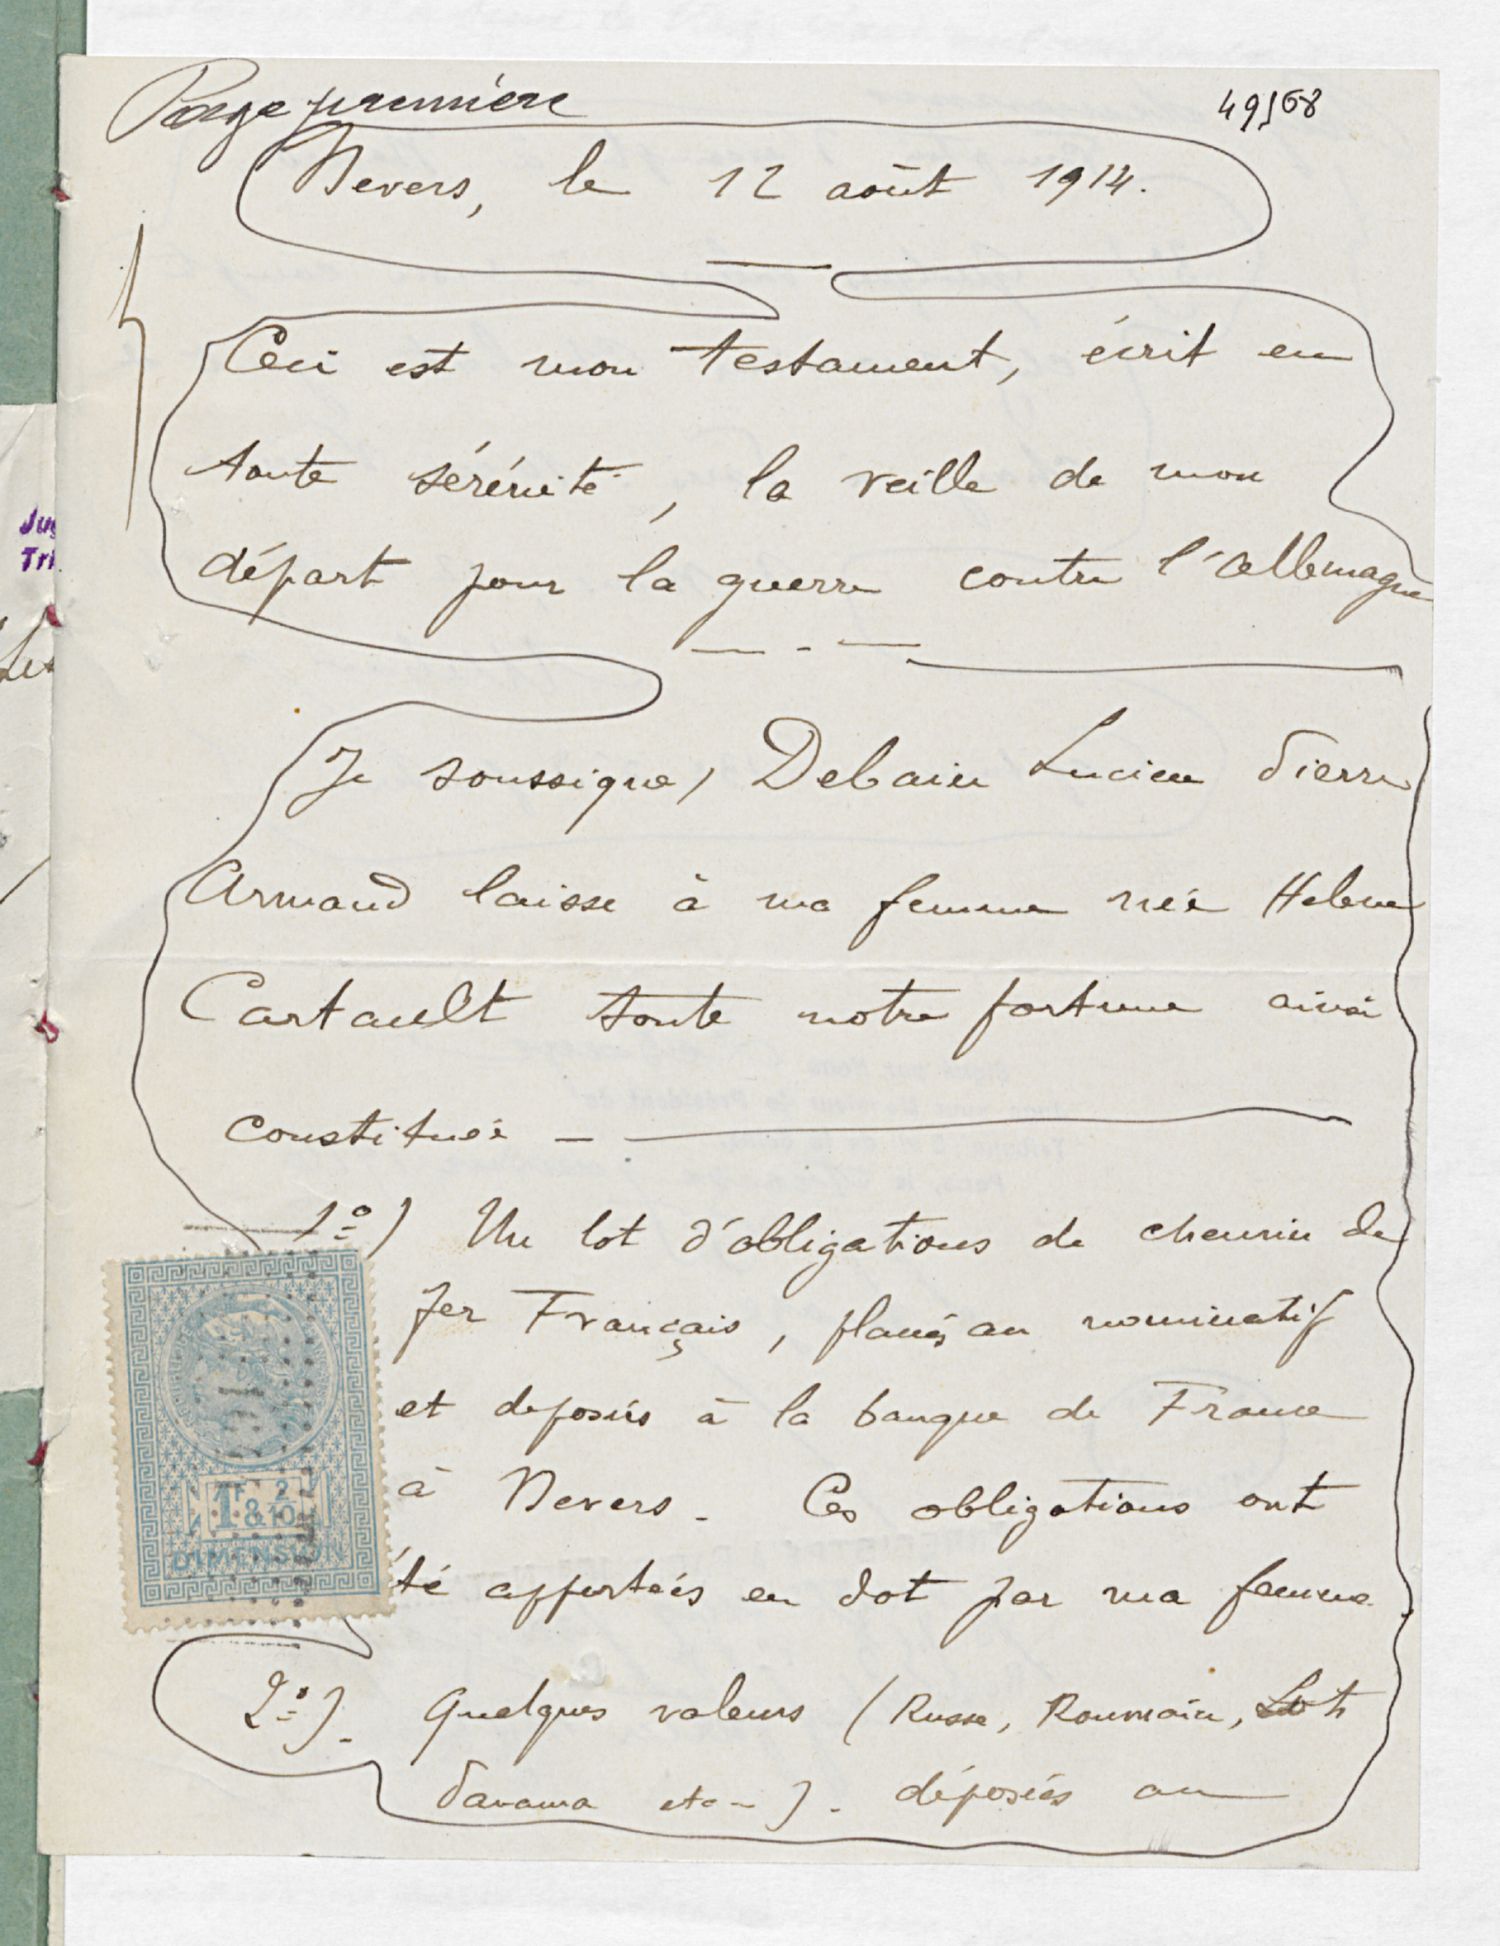 Page première
49568
Nevers, le 12 août 1914.
Ceci est mon testament, écrit en
toute sérénité, la veille de mon
départ pour la guerre contre l'Allemagne
Je soussigné, Debain Lucien Pierre
Armand laisse à ma femme née Helene
Cartault toute notre fortune ainsi
constituée —
1º) Un lot d'obligations de chemin de
fer Français, placés au nominatif
et deposés à la banque de France
à Nevers. Ces obligations ont
été apportées en dot par ma femme.
2º). Quelques valeurs (Russe, Roumain, Lots
Panama etc —). déposées au
1F & 2/10
DIMENSION
Jug
Tri